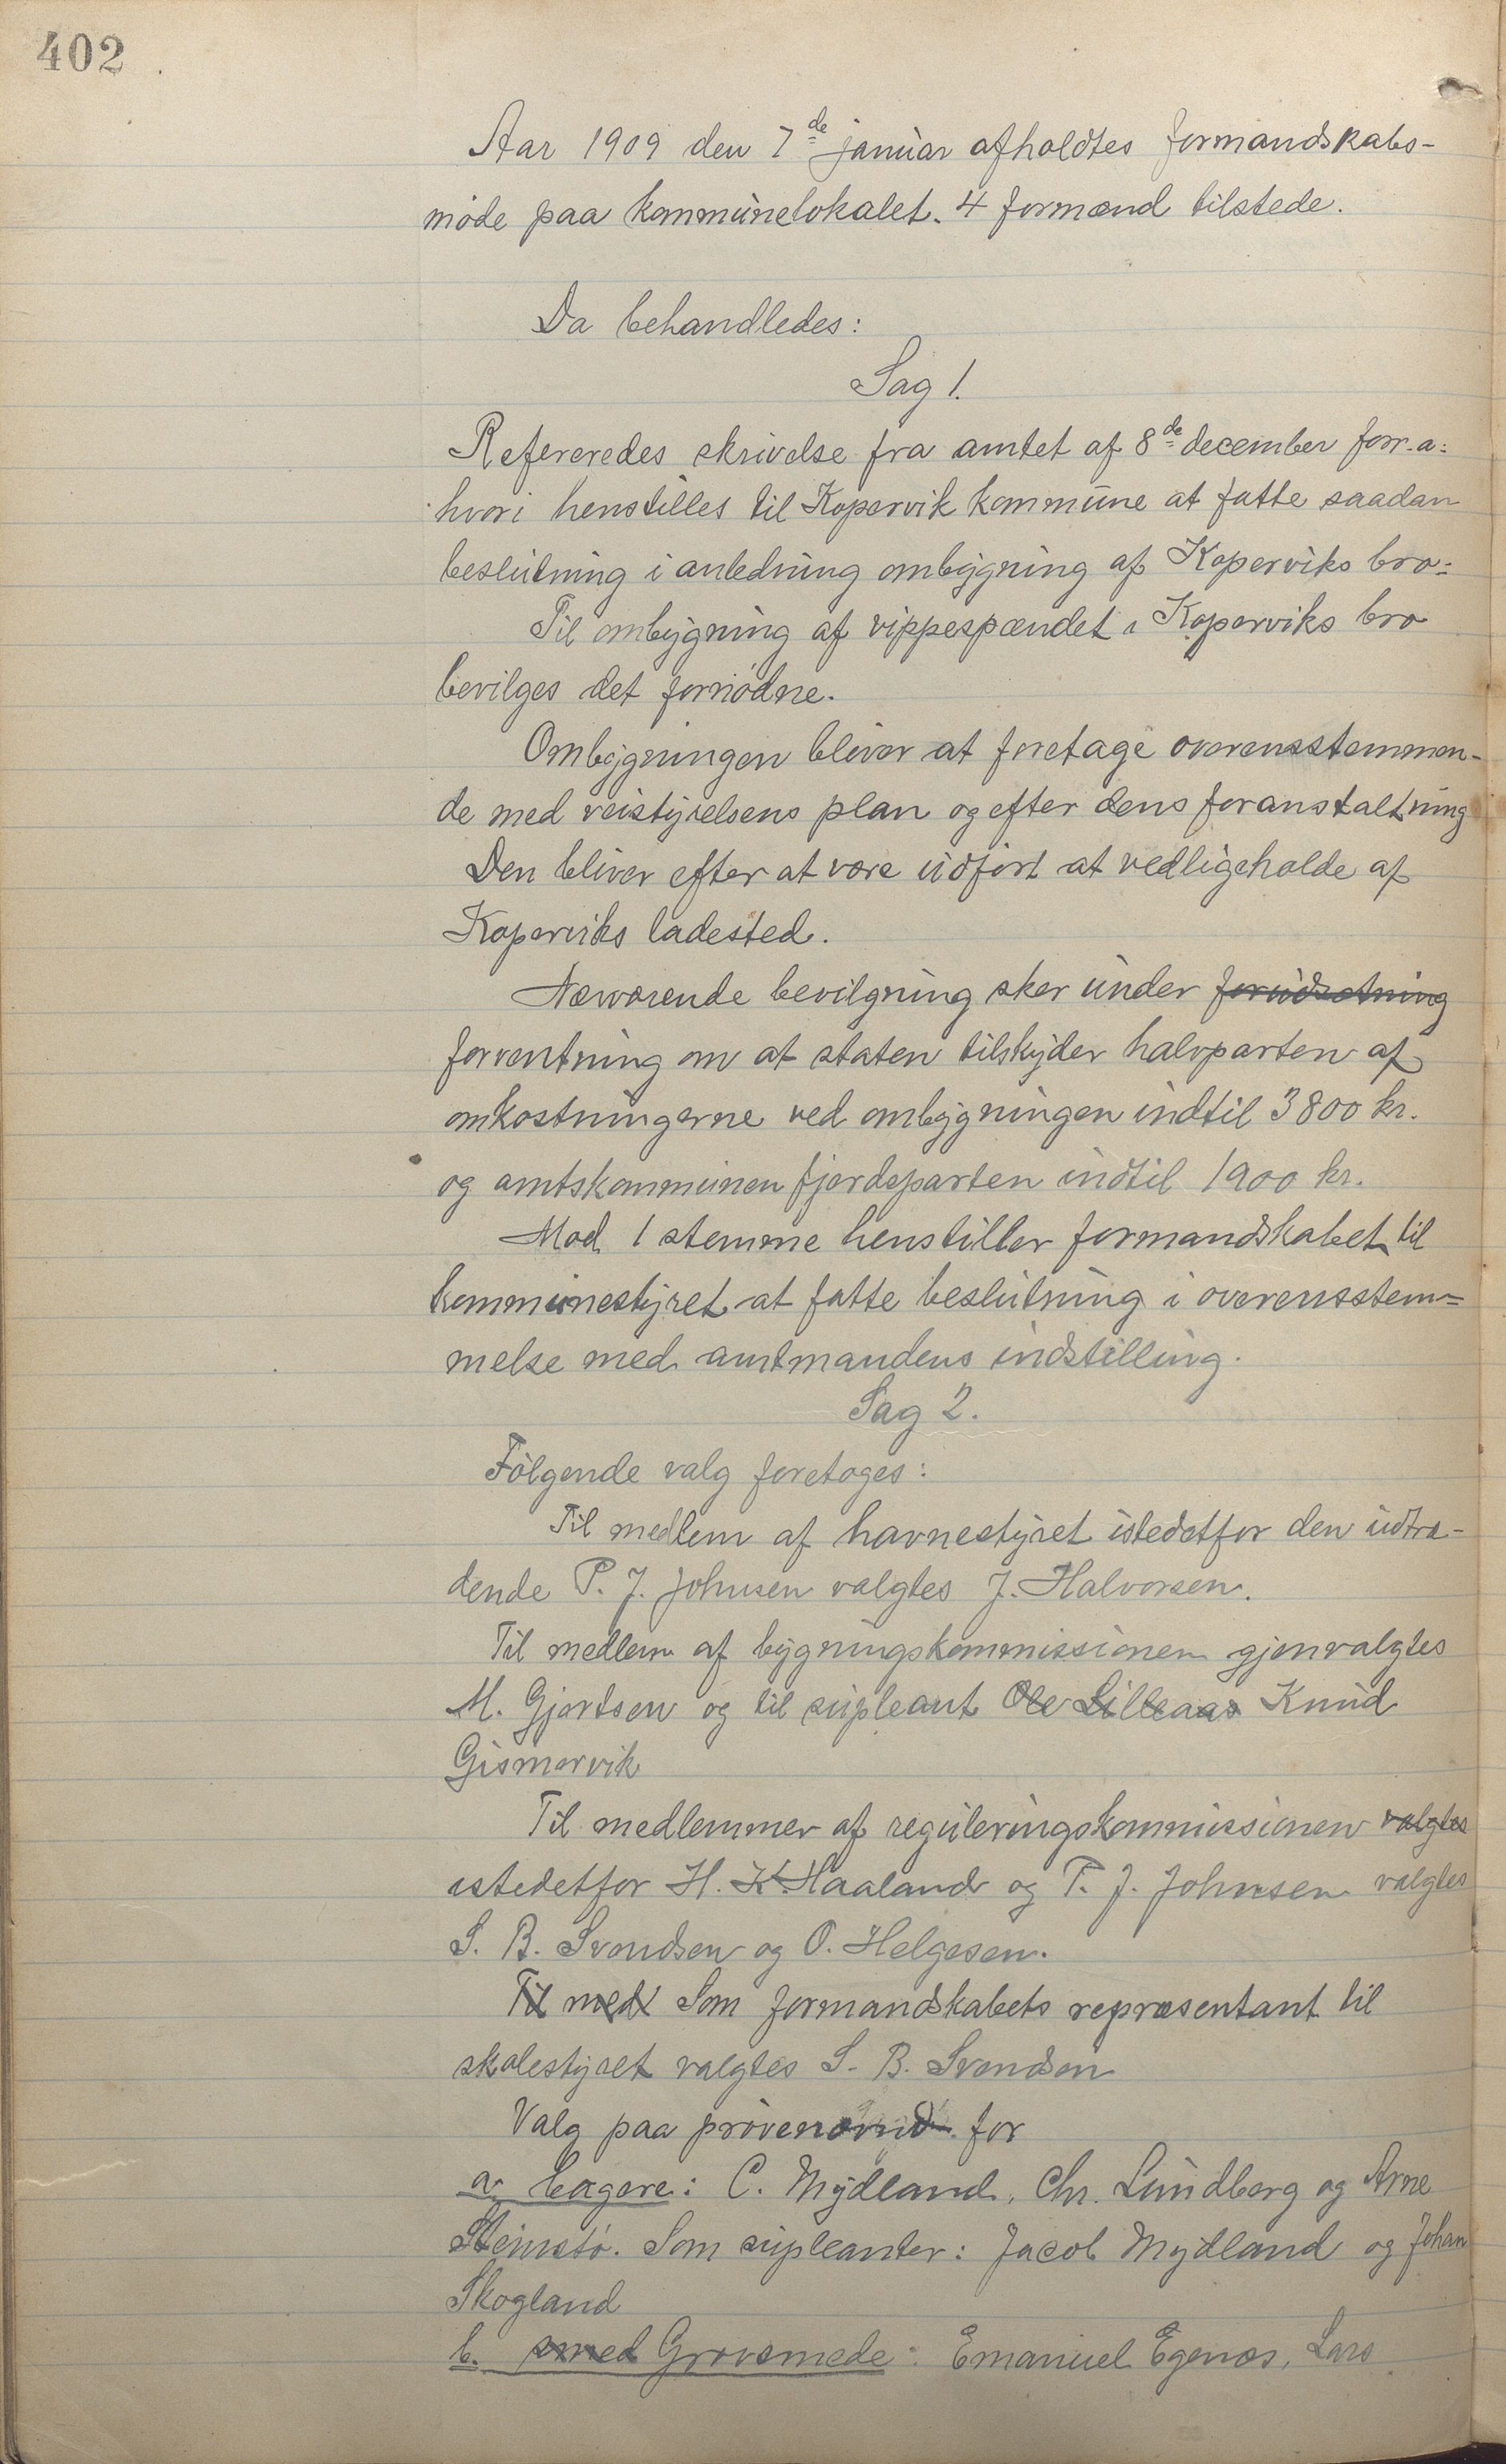 402
Aar 1909 den 7de januar afholdtes formandskabs-
møde paa kommunelokalet. 4 formænd tilstede.
Da behandledes:
Sag 1.
Refereredes skrivelse fra amtet af 8de december forr. a:
hvori henstilles til Kopervik kommune at fatte saadan
beslutning i anledning ombygning af Koperviks bro:
Til ombygning af vippespændet i Koperviks bro
bevilges det fornødne.
Ombygningen bliver at foretage overensstemmen-
de med veistyrelsens plan og efter dens foranstaltning
Den bliver efter at være udført at vedligeholde af
Koperviks ladested.
Nærværende bevilgning sker under forudsætning
forventning om at staten tilskyder halvparten af
omkostningerne ved ombygningen indtil 3800 kr.
og amtskommunen fjerdeparten indtil 1900 kr.
Mod 1 stemme henstiller formandskabet til
kommunestyret at fatte beslutning i overensstem=
melse med amtmandens indstilling.
Sag 2.
Følgende valg foretoges:
Til medlem af havnestyret istedetfor den udtræ-
dende P. J. Johnsen valgtes J. Halvorsen.
Til medlem af bygningskommissionen gjenvalgtes
M. Gjertsen og til supleant Ole Lilleaas Knud
Gismervik
Til medlemmer af reguleringskommissionen valgtes
istedetfor H. K. Haaland og P. J. Johnsen valgtes
S. B. Svendsen og O. Helgesen.
Til med Som formandskabets repræsentant til
skolestyret valgtes S. B. Svendsen
Valg paa prøvenævnd for
a. bagere: C. Mydland, Chr. Lundberg og Arne
Stensø. Som supleanter: Jacob Mydland og Johan
Skogland
b. smed Grovsmede: Emanuel Egenæs, Lars